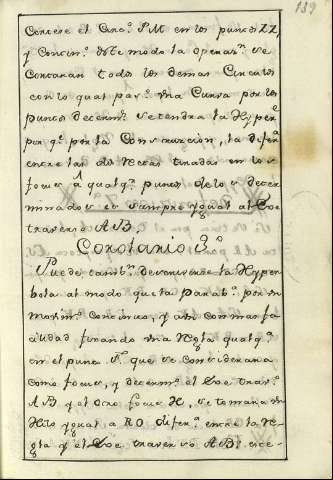 139
Cortere el Circ.º P.M en los puntos ZZ
y Contin.º este modo la operaz.ⁿ se
Cortaran todos los demas Circulos
con lo qual pas.ª una Curva por los
puntos determ.ˢ se tendra la Hyper.ª
por q.º por la Construccion, la difer.ª
entre las dos rectas tiradas en los
focus â qualq.ª punto de los deter
minados es siempre ygual al Exe
traverso AB.
Corolario 3.º
Puede tamb.ⁿ describirse la Hyper
bola al modo que la Parab.ª por un
movim.º Continuo, y asi con mas fa
cilidad fixando una Regla qualq.ª
en el punto que se considerara
como focus, y determ.º el Exe trav.º
AB y el otro focus H, se tomara un
Hilo ygual a RO difer.ª entre la Re
gla y el Exe traverso AB: este